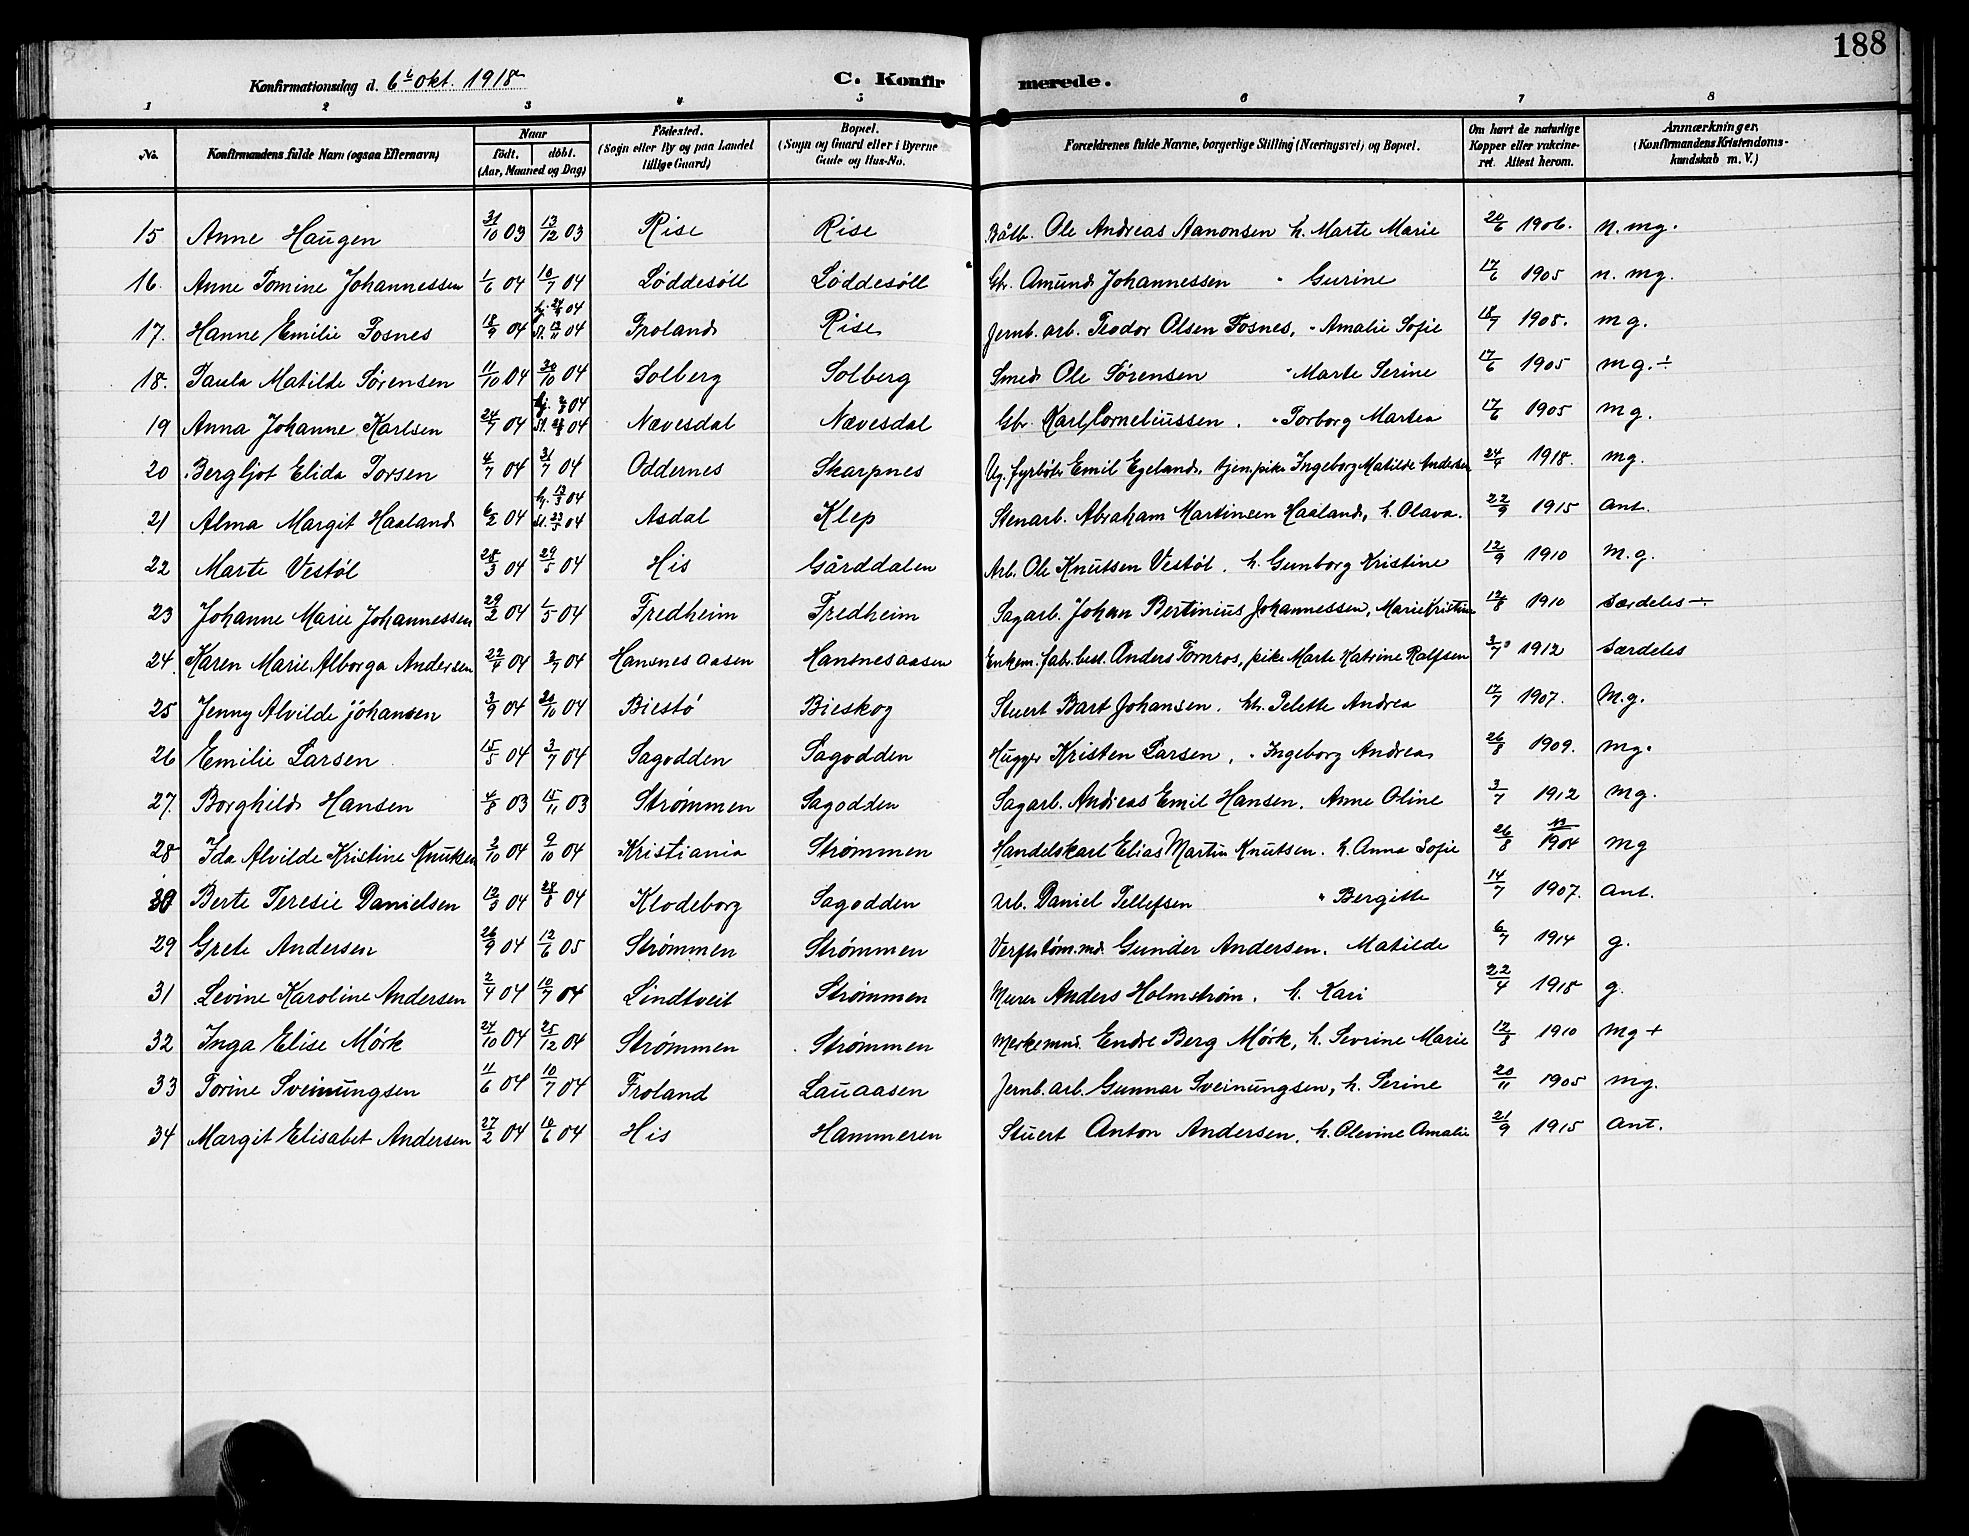 188
Konfirmationsdag d. 6te okt. 1918
C. Konfirmerede.
1 2 3 4 5 6 7 8
No. Konfirmandens fulde Navn (ogsaa Efternavn) Naar født. døbt. (Aar, Maaned og Dag) Fødested. (Sogn eller By og paa Landet tillige Gaard) Bopæl. (Sogn og Gaard eller i Byerne Gade og Hus-No. Forældrenes fulde Navne, borgerlige Stilling (Næringsvei) og Bopæl. Om havt de naturlige Kopper eller vakcineret. Attest herom. Anmærkninger. (Konfirmandens Kristendomskundskab m. V.)
15 Anne Haugen 31/10 03 13/12 03 Rise Rise Ole Andreas Aanonsen h. Marte Marie 20/6 1906. n. mg.
16. Anne Tomine Johannessen 1/6 04 10/7 04 Løddesøll Løddesøll Gbr. Amund Johannessen " Gurine 17/6 1905 n. mg.
17. Hanne Emilie Fosnes 18/9 04 04 04 Froland Rise Jernb. arb. Teodor Olsen Fosnes, " Amalie Sofie 18/7 1908. mg.
18. Paula Matilde Sørensen 11/10 04 30/10 04 Solberg Solberg Smed Ole Sørensen " Marte Serine 17/6 1905 mg. ÷
19 Anna Johanne Karlsen 24/7 04 04 04 Nævesdal Nævesdal Gbr. Karl Corneliussen. " Torborg Martea 17/6 1905 mg.
20 Bergljot Elida Torsen 4/7 04 31/7 04 Oddernes Skarpnes Ug. fyrbøter Emil Egeland, tjen.pike Ingeborg Matilde Andersen 24/4 1918. mg.
21 Alma Margit Haaland 6/2 04 04 04 Asdal Klep Stenarb. Abraham Martinsen Haaland, h. Olava. 22/9 1915 ant.
22 Marte Vestøl 28/3 04 29/5 04 His Gårddalen Arb. Ole Knutsen Vestøl. h. Gunborg Kristine 12/9 1910 m.g.
23 Johanne Marie Johannessen 29/2 04 1/5 04 Fredheim Fredheim Sagarb. Johan Bertinius Johannessen, Marie Kristine 12/8 1910 særdeles ÷
24. Karen Marie Alborga Andersen 22/4 04 3/7 04 Hansnesaasen Hansnesaasen Enkem. fab.best. Anders Tornros, pike Marte Katrine Ralfsen 3/7 1912 særdeles
25 Jenny Alvilde Johansen 3/9 04 04 Biestø Bieskog Stuert Bart Johansen. Telette Andrea 17/7 1907. M.g.
26 Emilie Larsen 15/5 04 3/7 04 Sagodden Sagodden Hugger Kristen Larsen, " Ingeborg Andrea 26/8 1909. mg.
27. Borghild Hansen 4/8 03 15/11 03 Strømmen Sagodden Sagarb. Andreas Emil Hansen. Anne Oline 3/7 1912 mg.
28 Ida Alvilde Kristine Knutsen 2/10 04 9/10 04 Kristiania Strømmen Handelskarl Elias Martin Knutsen. h. Anna Sofie 26/8 1904 mg
30 Berte Teresie Danielsen 13/3 04 28/8 04 Klodeborg Sagodden Arb. Daniel Tellefsen " Bergitte 14/7 1907. ant.
29 Grete Andersen 26/9 04 12/6 05 Strømmen Strømmen Verftstøm.md. Gunder Andersen. Matilde 6/7 1914 g.
31 Levine Karoline Andersen 2/4 04 10/7 04 Lindtveit Strømmen Murer Anders Holmstrøm. h. Kari 22/4 1918 g.
32 Inga Elise Mørk 24/10 04 25/12 04 Strømmen Strømmen Merkemnd. Endre Berg Mørk, h. Sevrine Marie 12/8 1910 mg +
33 Torine Sveinungsen 11/6 04 10/7 04 Froland Lauaasen Jernb. arb. Gunnar Sveinungsen, h. Serine 20/11 1905 mg.
34 Margit Elisabet Andersen 27/2 04 04 His Hammeren Stuert Anton Andersen. h. Olevine Amalie 21/9 1915 ant.